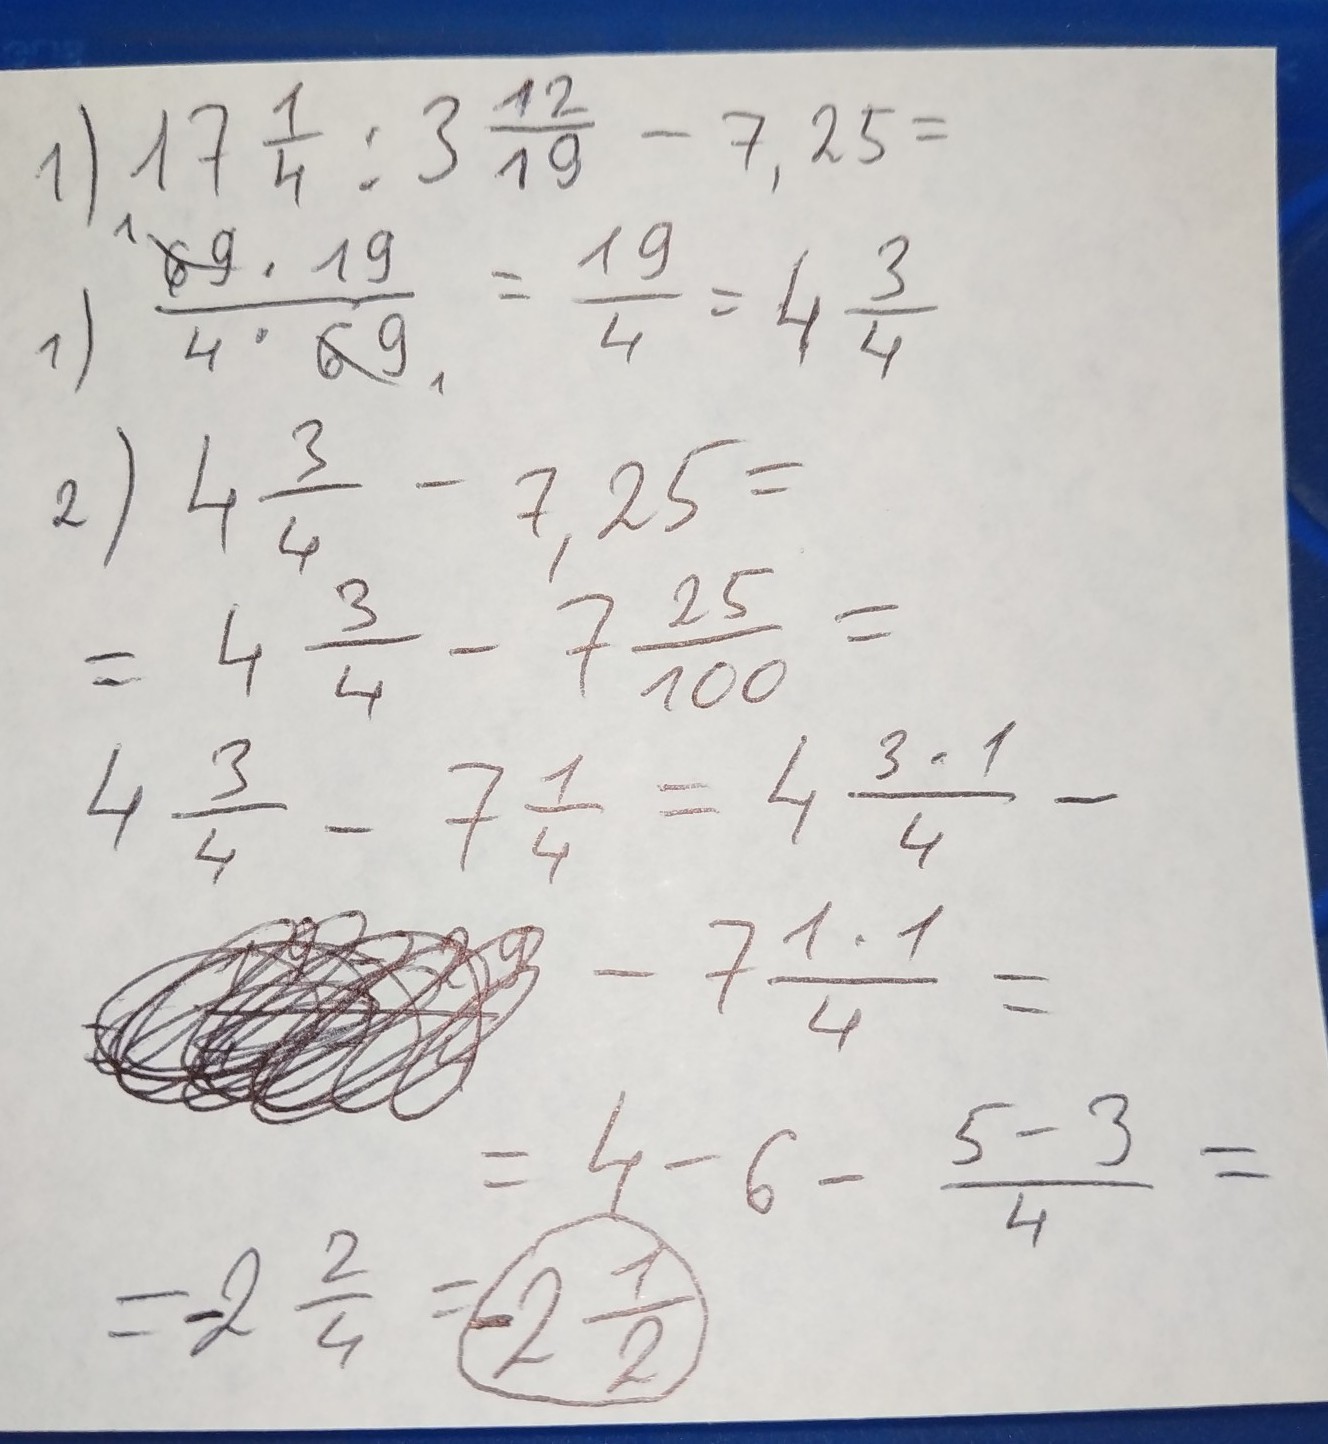 1) 17 1/4 : 3 12/19 - 7,25 =
1) 69 · 19 / 4 · 69 = 19/4 = 4 3/4
2) 4 3/4 - 7,25 =
= 4 3/4 - 7 25/100 =
4 3/4 - 7 1/4 = 4 3·1/4 -
- 7 1·1/4 =
= 4 - 6 - 5-3/4 =
= -2 2/4 = -2 1/2